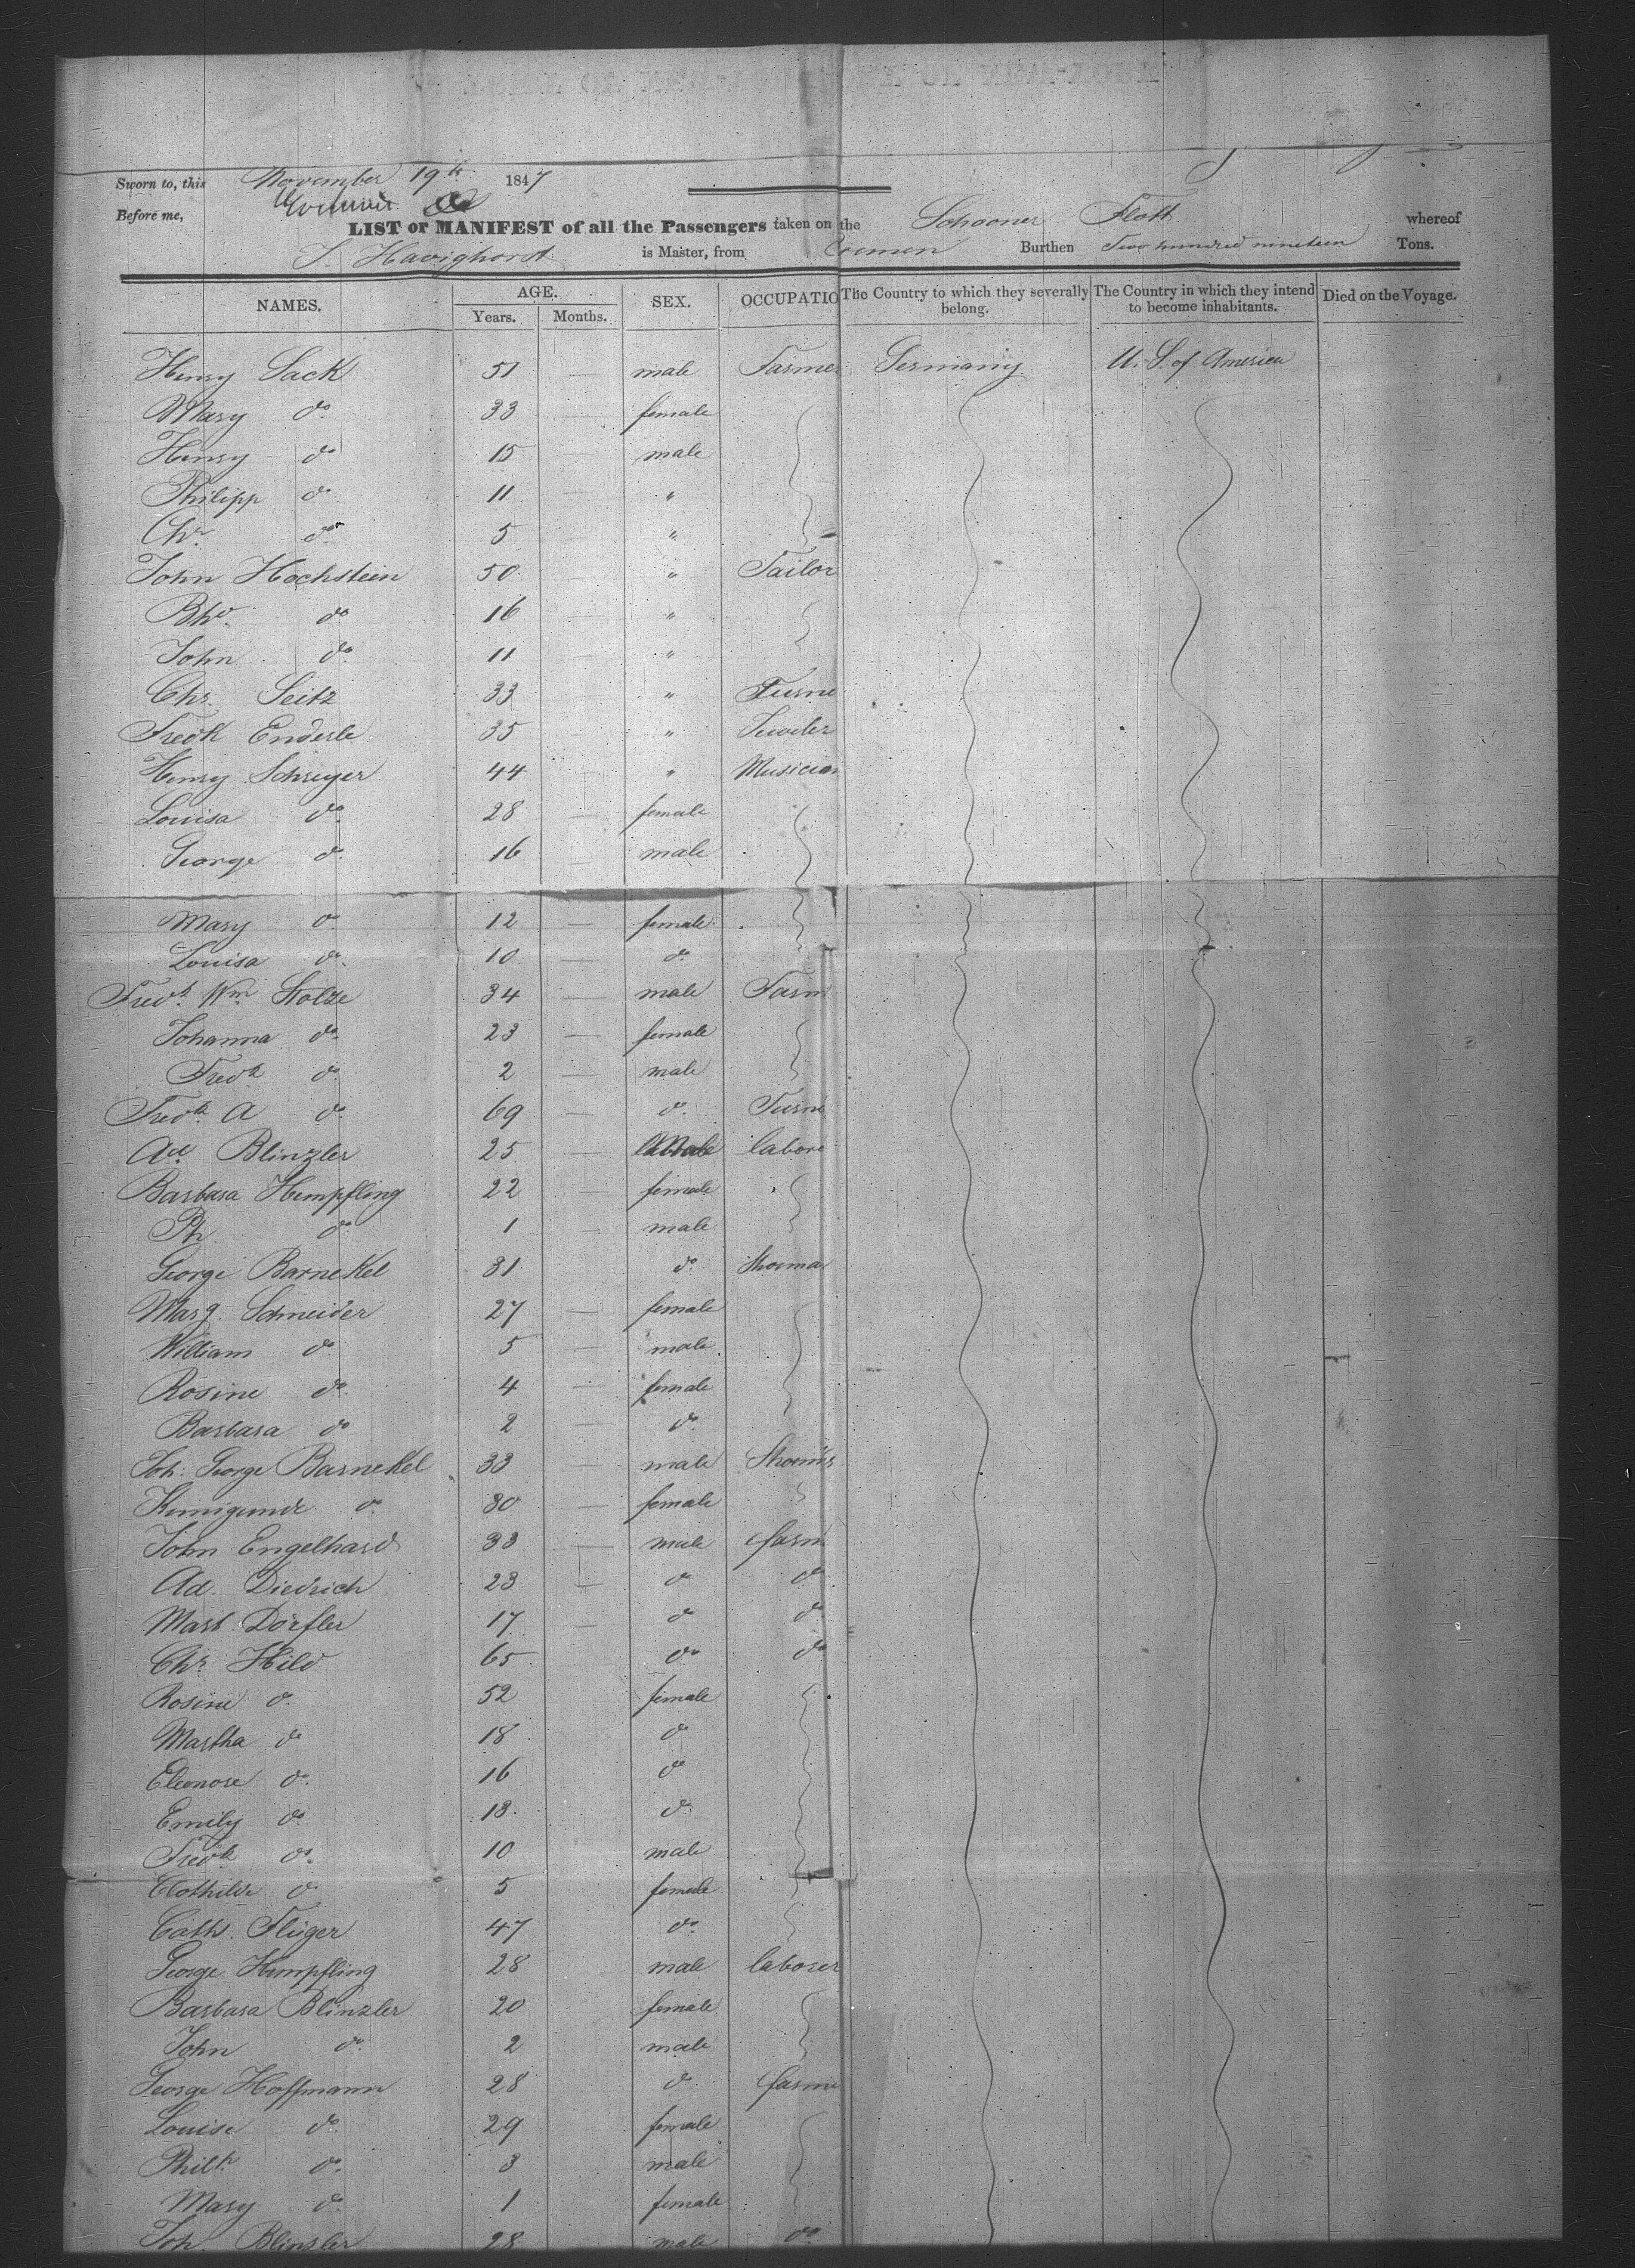 Sworn to, this November 19th 1847
Before me,
LIST or MANIFEST of all the Passengers taken on the Schooner Flott whereof
S. Havighorst is Master, from Bremen Burthen Two hundred nineteen Tons.
NAMES. AGE. SEX. OCCUPATIO The Country to which they severally belong. The Country in which they intend to become inhabitants. Died on the Voyage.
Years. Months.
Henry Sack 51 — male Farmer Germany U. S. of America
Mary do 33 — female
Henry do 15 — male
Philipp do 11 — "
Chr. do 5 — "
John Hochstein 50 — " Tailor
Bhd. do 16 — "
John do 11 — "
Chr. Seitz 33 — " Turne
Fredk Enderle 35 — " Juweler
Henry Schreyer 44 — " Musician
Louisa do 28 — female
George do 16 — male
Mary do 12 — female
Louisa do 10 — do
Fredk Wm Stolze 34 — male Farm
Johanna do 23 — female
Fredk do 2 — male
Fredk A do 69 — do Turne
Ad. Blinzler 25 — male labore
Barbara Hempfling 22 — female
Ph. do 1 — male
George Barnekel 31 — do Shoema
Marg. Schneider 27 — female
William do 5 — male
Rosine do 4 — female
Barbara do 2 — do
Joh. George Barnekel 33 — male
Kunigunde do 30 — female
John Engelhard 33 — male farm
Ad. Diedrich 23 — do do
Mart Dörfler 17 — do do
Chr. Hild 65 do do
Rosine do 52 female
Martha do 18 do
Eleonore do 16 do
Emily do 13 do
Fredk do 10 male
Clothilde do 5 female
Cath. Flüger 47 do
George Hempfling 28 male laborer
Barbara Blinzler 20 female
John do 2 male
George Hoffmann 28 do farme
Louise do 29 female
do 3 male
Mary do 1 female
Joh. Blinzler 28 male do